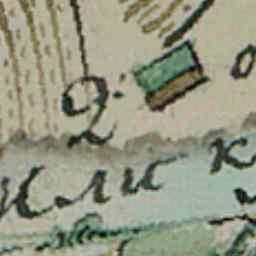 2.
или к